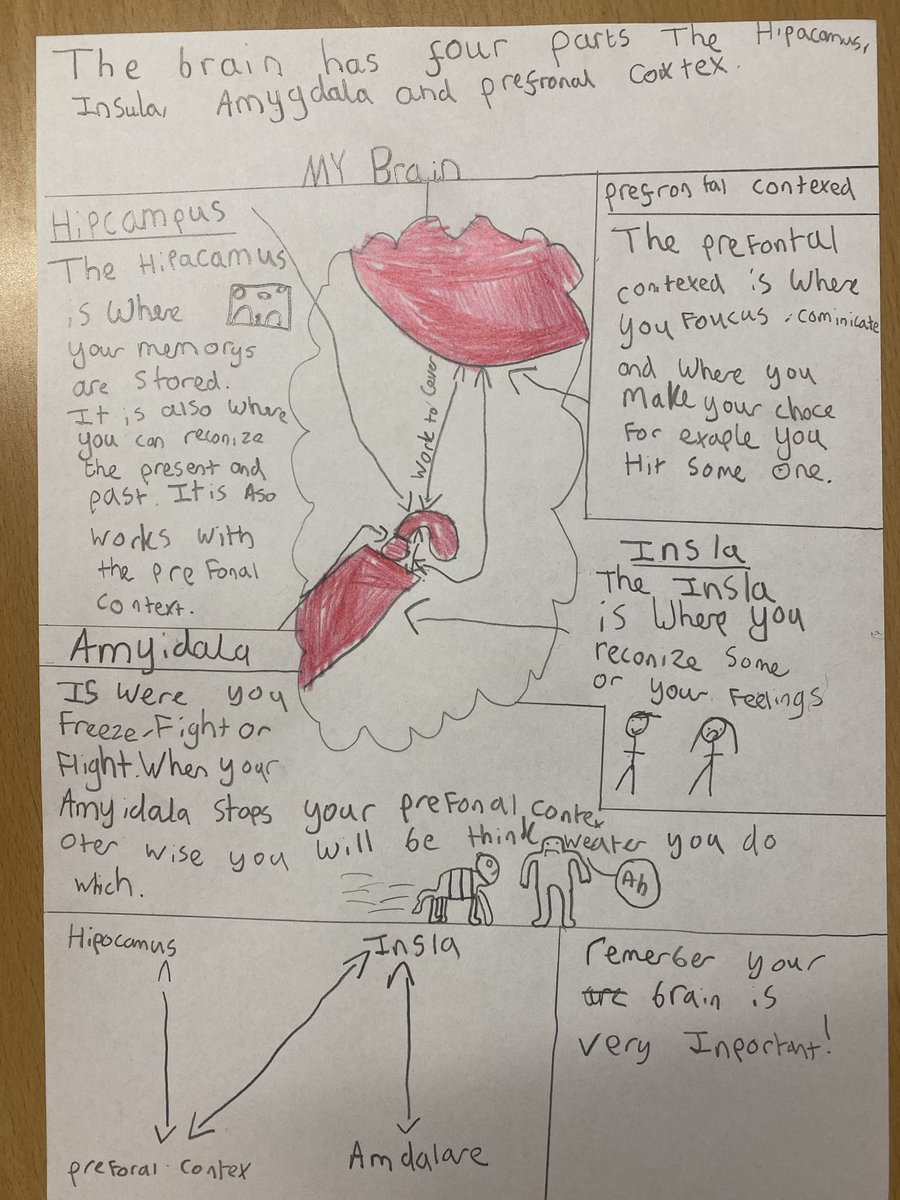 The brain has four parts The Hipacamus,
Insula, Amygdala and prefronal Coxtex.
MY Brain
Hipcampus
The Hipacamus
is Where
your memorys
are stored.
It is also where
you can reconize
the present and
past. It is Aso
works with
the pre Fonal
Context.
Work to Cever
prefrontal contexed
The prefontal
contexed is Where
you Foucus, cominicate
and where you
make your choce
For exaple you
Hit some one.
Insla
The Insla
is Where you
reconize some
or your Feelings
Amyidala
IS were you
Freeze, Fight or
Flight. When your
Amyidala stops your preFonal contex
oter wise you will be think weater you do
which.
Ah
Hipocamus
Insla
preforal contex
Amdalare
remember your
are brain is
very Inportant!